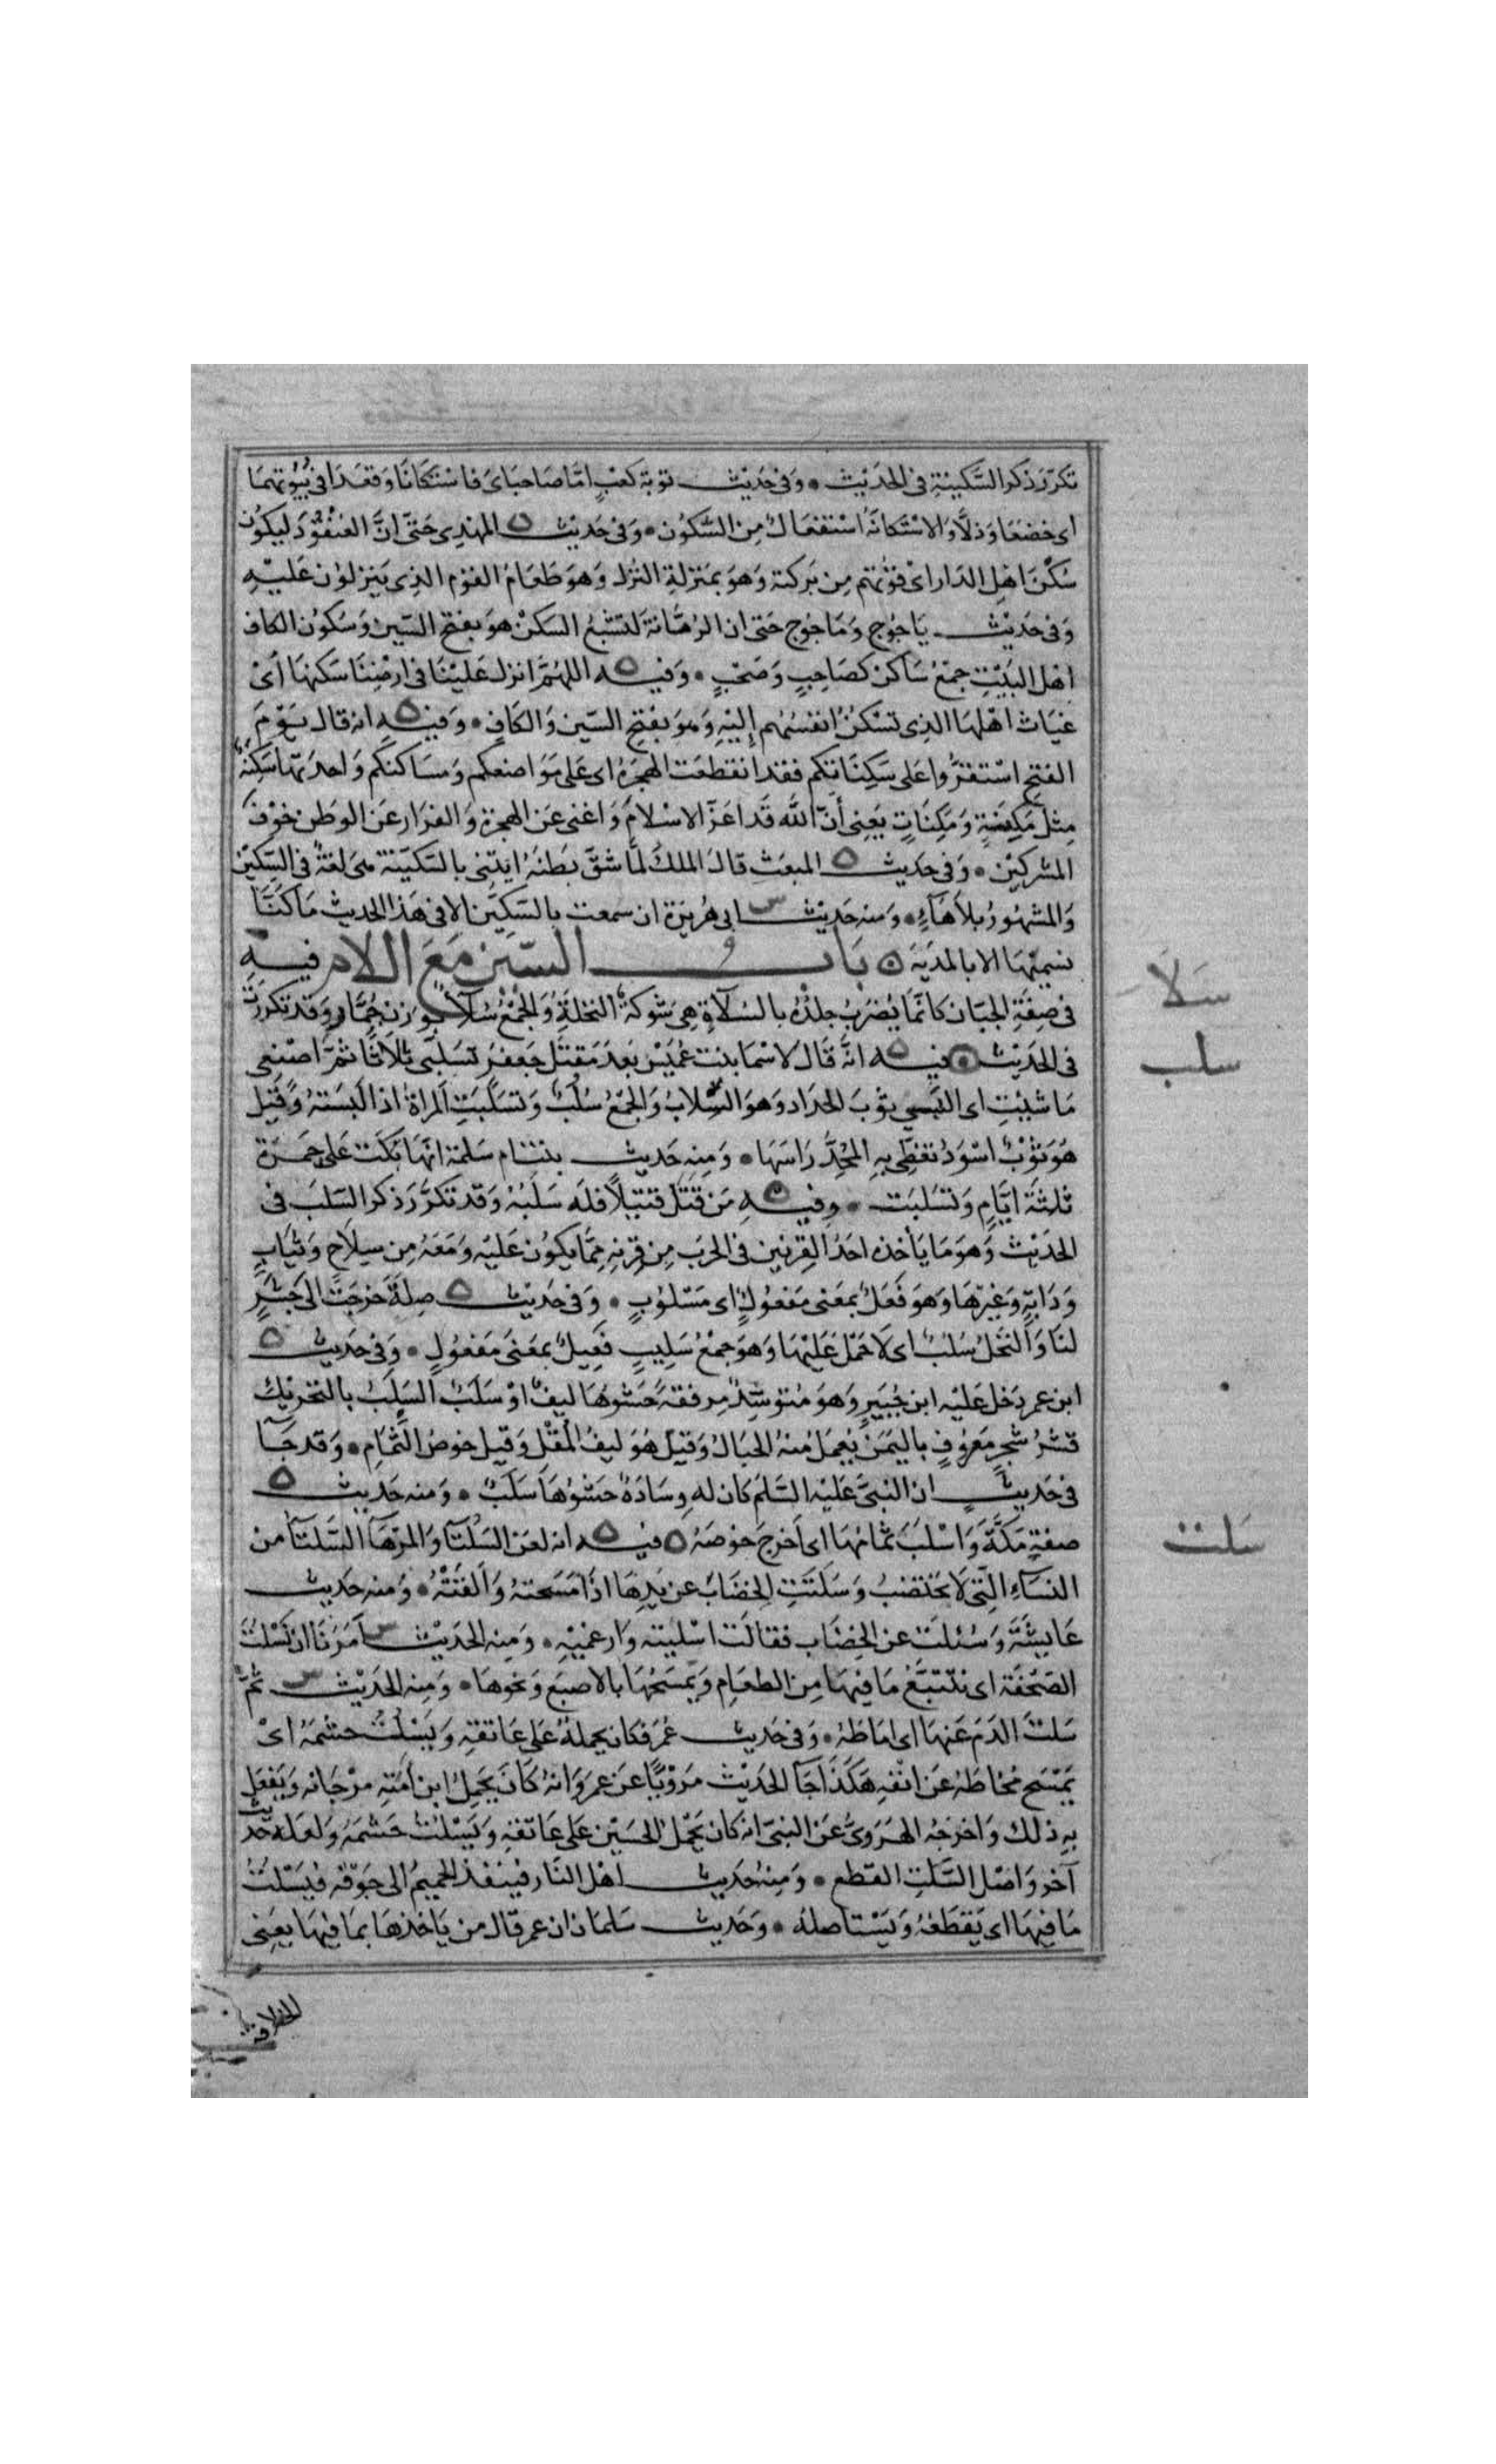 تكرّر ذكر السَّكينةِ فى الحدَيْث وَفى حَديْث توبة كعَبٍ امَّا صَاحبَاىَ فاسْتكَانَا وَقعَدَا فى بُيُوتهمَا
اى خضعَا وَذلَّا وَالاسْتكانَةُ اسْتفعَالٌ مِن السّكوُن وَفى حَديْث ه المهْدِى حَتّى انَّ العُنْقُوْدَ ليكوُن
سُكْنَ اهْلِ الدَار اىْ قوْتهم مِن بَركته وَهوَ بمَنزلةِ النزُل وَهوَ طعَامُ القوْم الذِى يَنزلوُن عَليْهِ
وَفى حَديْث يَاجوُج وَمَاجوُج حَتى ان الرُمَّانةَ لتشْبعُ السَكنْ هوَ بفتح السّين وَسُكوُن الكاف
اهْل البَيْتِ جمْعُ سَاكن كصَاحِبٍ وَصَحْبٍ وَفيه ه اللهُمَّ انزل عَليْنَا فى ارضِنَا سَكنهَا اىْ
غيَاث اهْلهَا الذِى تسْكنُ انفسُهُم إِليْهِ وَهوَ بفتِح السّين وَالكَافِ وَفيْهِ ه انه قال يَوْمَ
الفتحِ اسْتقرُّوا عَلى سَكِنَاتكم فقد انقطعَت الهجَرة اى عَلى مَوَاضعكم وَمسَاكنكم وَاحدَتهَا سَكِنَةٌ
مِثل مَكِنَةٍ وَمَكِنَاتٍ يَعنِى أنّ الله قَد اعَزّ الاسْلامَ وَاغنى عَن الهجرَة وَالفرَار عَن الوَطن خَوْفَ
المشركِيْن وَفى حَديث ه المبعَثِ قالَ الملكُ لمَّا شقَّ بَطنَهُ ايتنِى بالسّكيّنة هى لغةٌ فى السّكِيّن
وَالمشهُورُ بلاَ هَآءٍ وَمنه حَديْث س ابى هُريْرَة ان سمعت بالسّكِيّن الا فى هَذا الحديث مَا كنّا
نسميْهَا الا بالمدْيَة ه بَابُ السّيْن مَعَ اللام فيه
فى صِفَةِ الجبَان كانّمَا يُضرَبُ جلدُهُ بالسُلآةِ هِىَ شوكة النخلةِ وَالجمْعُ سُلآء بوَزن جُمَّار وَقد تكررَت
فى الحَديْث ه فيه ه انّهُ قَالَ لاسْمَا بنت عُمَيْس بَعدَ مَقتَل جَعفرَ تسَلّبى ثلاَثًا ثمّ اصْنعى
مَا شئْتِ اى البَسِى ثوْبَ الحدَاد وَهوَ السِّلابُ وَالجمْعُ سُلبٌ وَتسَلّبَتِ المراة اذا لَبسَتهُ وَقيْل
هُوَ ثوْبٌ اسْوَدُ تغطّى بهِ المُحِدُّ رَاسَهَا وَمِنه حَديث بنت ام سَلمة انّهَا بَكَت عَلى حَمزةَ
ثلثةَ ايَّامٍ وَتسَلبَت وفيهِ ه مَن قَتَل قتيْلًا فلَه سَلَبُهُ وَقد تكرّرَ ذكر السّلَب فى
الحَديْث وَهوَ مَا يَأخذه احَدُ القرنين فى الحربَ مِن قِرْنهِ مِمَّا يكوُن عَليْه وَمَعَهُ مِن سِلَاحٍ وَثيَابٍ
وَدَابّةٍ وَغيرْهَا وَهوَ فَعَلٌ بمعَنى مَفعُولٍ اى مَسْلوُبٍ وَفى حَديْث ه صِلةَ خرَجتُ الى جَشَرٍ
لنَا وَالنّخْلُ سُلبٌ اى لَا حَمْل عَليْهَا وَهوَ جمْعُ سَلِيبٍ فعِيلٌ بمعَنى مَفعُولٍ وَفى حَديث ه
ابن عمر دَخل عَليْه ابن جُبَيرٍ وَهوَ مُتوسِّدٌ مِرفقةً حَشوهَا ليفٌ اوْ سَلَبٌ السَلَبُ بالتحريْك
قشرُ شجرٍ مَعرُوفٍ باليَمَن يُعمَل مِنهُ الحبَالُ وَقيْلَ هُوَ ليفُ المُقْل وَقيل خوصُ الثُمَامِ وَقد جَآ
فى حَديثٍ ان النبىّ عَليْه السّلم كان له وِسَادَةٌ حَشوُهَا سَلَبٌ وَمنه حَديث ه
صفةِ مَكَّةَ وَاسْلَبَ ثمامُهَا اى اَخرجَ خوْصَهُ ه فيه ه انه لعَن السَّلْتَآ وَالمرْهَآ السَّلتآ من
النسَآءِ الّتى لَا تختضبُ وَسَلَتَتِ الخضَابَ عن يَدِهَا اذَا مَسَحتهُ وَالقتْهُ وَمنه حَديث
عَايشَةَ وَسُئلَت عن الخِضَاب فقالَت اسْلِتيه وَارغمِيْهِ وَمِنه الحَديْث س اَمَرنَا ان نَسْلُتَ
الصَحْفَة اى نتَتبّعُ مَا فيهَا مِن الطعَامِ وَيمَسَحُهَا بالاصبَع وَنحوهَا وَمِنه الحَديْث س ثمّ
سَلتَ الدَمَ عَنهَا اى امَاطهُ وَفى حَديث عُمَر فكان يحملهُ عَلى عَاتقهِ وَيَسْلُتُ خشمَهُ اىْ
يَمْسَحُ مُخَاطَهُ عَن انفهِ هَكَذَا جَآ الحَديْث مَرْوِيًّا عَن عمرَ وَانهُ كَانَ يَحمِلُ ابن اَمَتهِ مرْجَانه وَيَفعَل
بهِ ذلك وَاخرجهُ الهرَوِىُّ عَن النبىّ انه كان يَحْمل الحسَيْن عَلى عَاتقهِ وَيَسْلتُ خشمَهُ وَلعَله حَديث
آخر وَاصْل السَّلْتِ القطع وَمِنهُ حَديث اهْل النّار فينفذ الحميمُ الى جَوْفه فيَسْلتُ
مَا فيهَا اى يَقطَعهُ وَيَسْتاصلهُ وَحَديث سَلمَان ان عمر قال من يَاخذهَا بمَا فيهَا يعَنِى
سَلَا
سلب
سَلت
للخلافة